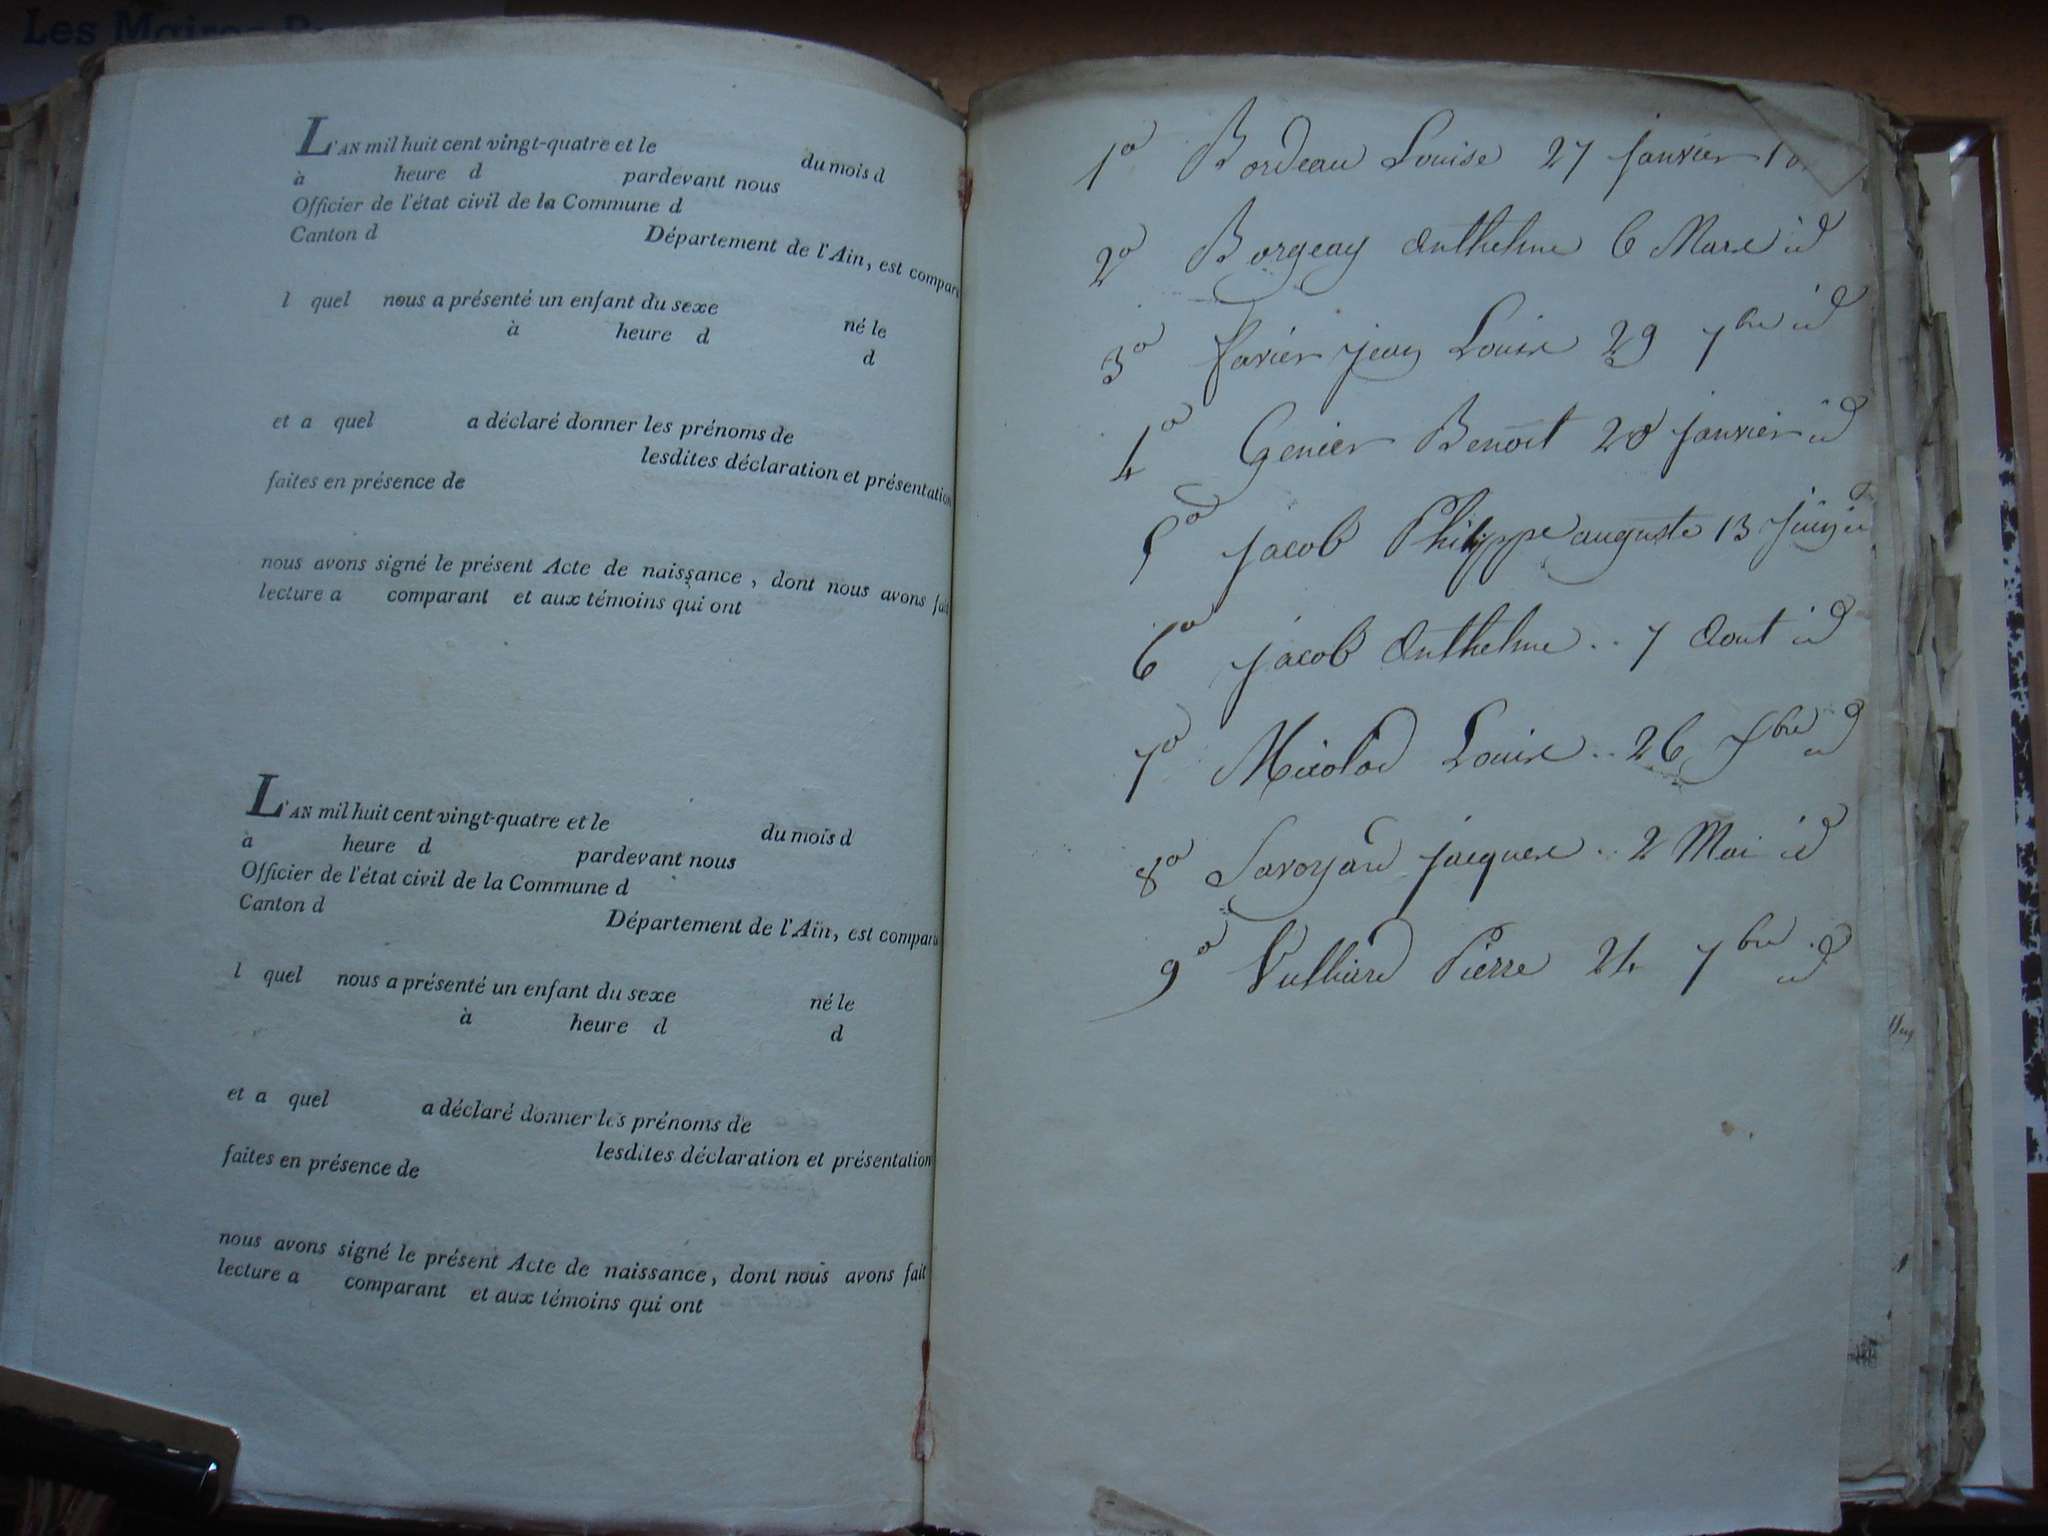 Les Maires
L'AN mil huit cent vingt-quatre et le du mois d
à heure d pardevant nous
Officier de l'état civil de la Commune d
Canton d Département de l'Ain, est compar
l quel nous a présenté un enfant du sexe né le
à heure d d
et a quel a déclaré donner les prénoms de
lesdites déclaration et présentation
faites en présence de
nous avons signé le présent Acte de naissance, dont nous avons fait
lecture a comparant et aux témoins qui ont
L'AN mil huit cent vingt-quatre et le du mois d
à heure d pardevant nous
Officier de l'état civil de la Commune d
Canton d Département de l'Ain, est compar
l quel nous a présenté un enfant du sexe né le
à heure d d
et a quel a déclaré donner les prénoms de
lesdites déclaration et présentation
faites en présence de
nous avons signé le présent Acte de naissance, dont nous avons fait
lecture a comparant et aux témoins qui ont
1o Bordeau Louise 27 janvier
2o Borgeay Anthelme 6 Mars id
3o favier jean Louis 29 7bre id
4o Genier Benoit 28 janvier id
5o jacob Philippe auguste 13 juin id
6o jacob Anthelme .. 7 Aout id
7o Micolod Louise .. 26 7bre id
8o Savoyard jacques .. 2 Mai id
9o Vulliard Pierre 24 7bre id